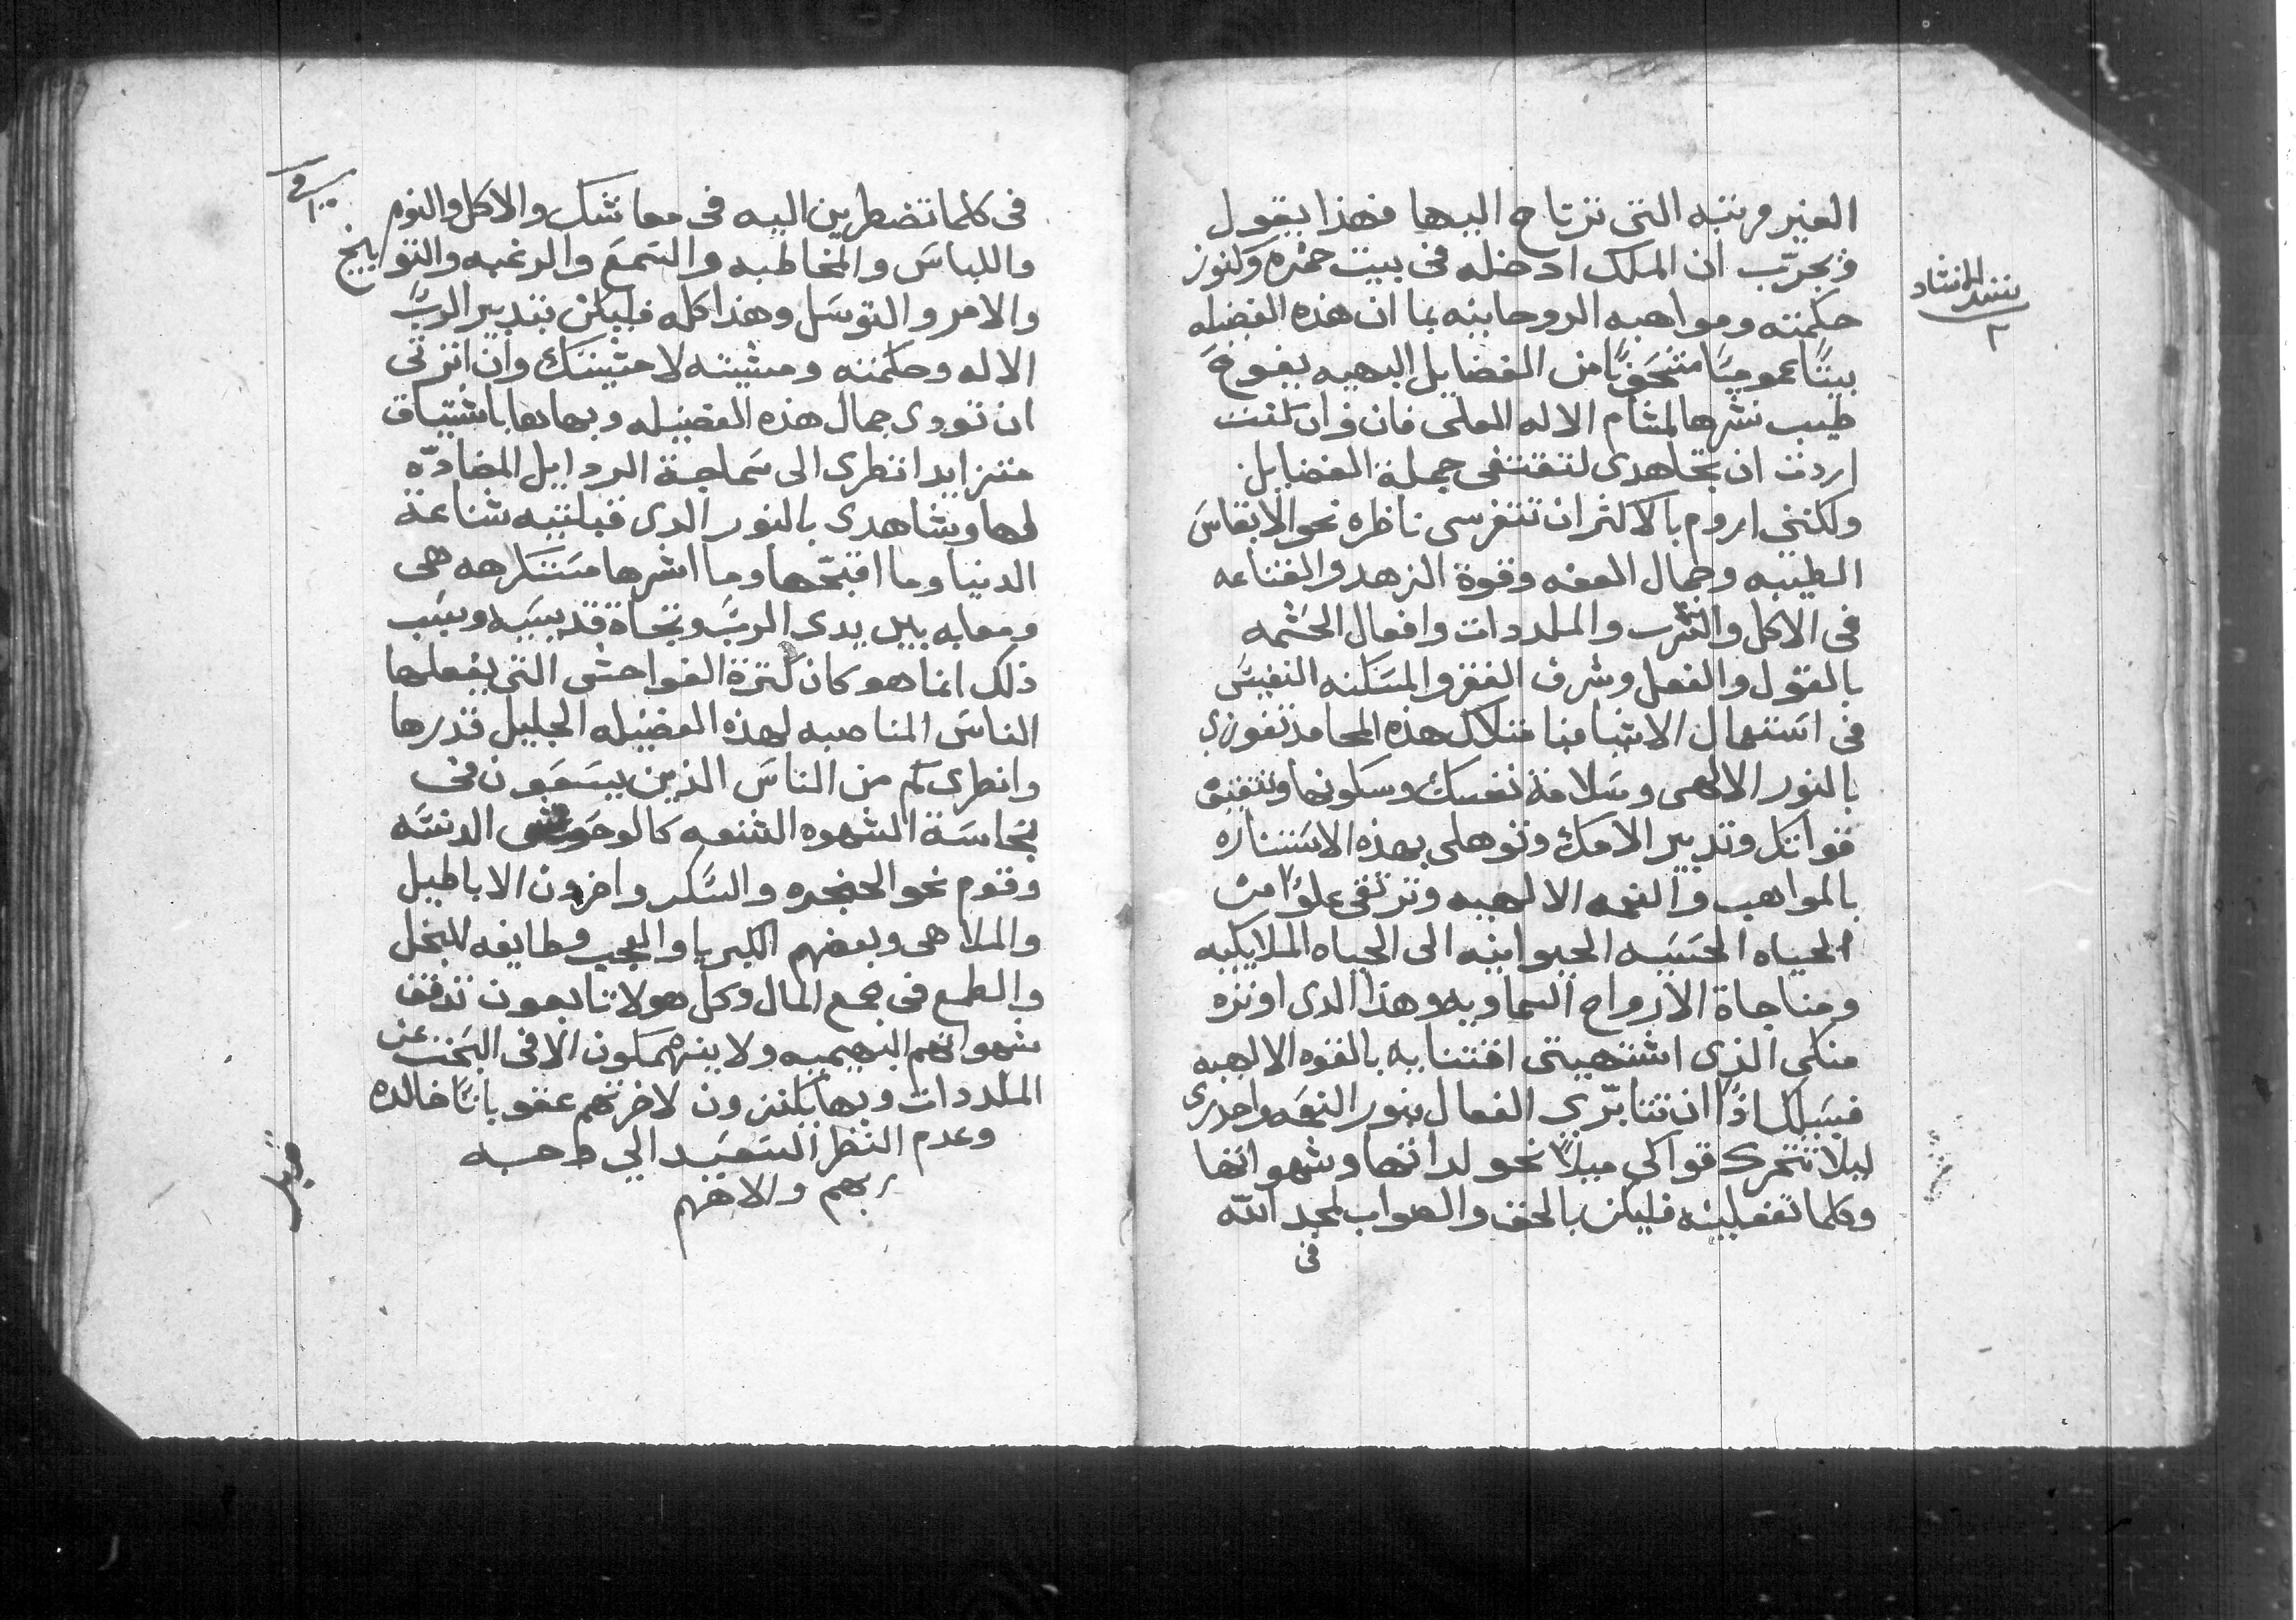 الغير مرتبه التى ترتاح اليها فهذا يقول
فى حرّب ان الملك ادخله فى بيت خمره وكنوز
حكمته ومواهبه الروحانيه بما ان هذه الفضيله
بيتًا عموميًا من الفضايل البهيه يفوح
طيب نشرها لمشام الاله العلى فان وان كنت
اردت ان تجاهدى لتقتفى جملة الفضايل
ولكننى اروم بالاكثر ان تتفرسى ناظره نحو الانفاس
الطيبه وجمال العفه وقوة الزهد والقناعه
فى الاكل والشرب والملددات وافعال الحشمه
بالقول والفعل وشرف الفقر والمسكنه النفيس
فى استعمال الاشيا فبامتلاك هذه المحامد تفوزى
بالنور الالهى وسلامة نفسك وسكونها وتتقيق
قواتك وتدبير الامك وتوهلى بهذه الاستناره
بالمواهب والنعمه الالهيه وترتقى علوًا من
الحياه الحسيه الحيوانيه الى الحياه الملايكيه
ومناجاة الارواح السماويه وهذا الدى اوثره
منكى الذى اشتهيتى اقتنايه بالقوه الالهيه
فسبيلك اذًا ان تتابرى الفعال بنور النعمه واحدرى
ليلا تتحرك قواكى ميلاً نحو لداتها وشهواتها
وكلما تفعلينه فليكن بالحق والصواب لمجد الله
فى
نشيد الانشاد
٢
فى كلما تضطرين اليه فى معاشك والاكل والنوم
واللباس والمخاطبه والسمع والرغبه والتوبيخ
والامر والتوسل وهذا كله فليكن بتدبير الربّ
الاله وحكمته ومشيته لا مشيتك وان اثرتى
ان تودى جمال هذه الفضيله وبهاها باشتياق
متزايد انظرى الى سماجة الردايل المضادّه
لها وشاهدى بالنور الدى قبلتيه شناعة
الدنيا وما اقبحها وما اشرها مستكرهه هى
ومعابه بين يدى الربّ وتجاة قديسيه وسبب
ذلك انما هو كان كترة الفواحش التى يفعلها
الناس المناصبه لهذه الفضيله الجليل قدرها
وانظرى كم من الناس الذين يسعون فى
نجاسة الشهوه الشنعه كالوحوش الدنسه
وقوم نحو الحنجره والسكر واخرون الاباطيل
والملاهى وبعضهم الكبريا والعجب وطايفه للبخل
والطمع فى جمع المال وكل هولا تابعون تدفق
شهواتهم البهيميه ولا ينهمكون الا فى البحت عن
الملددات وبها يكنزون لاخرتهم عقوباتًا خالده
وعدم النظر السعيد الي طحه
ربهم والاههم